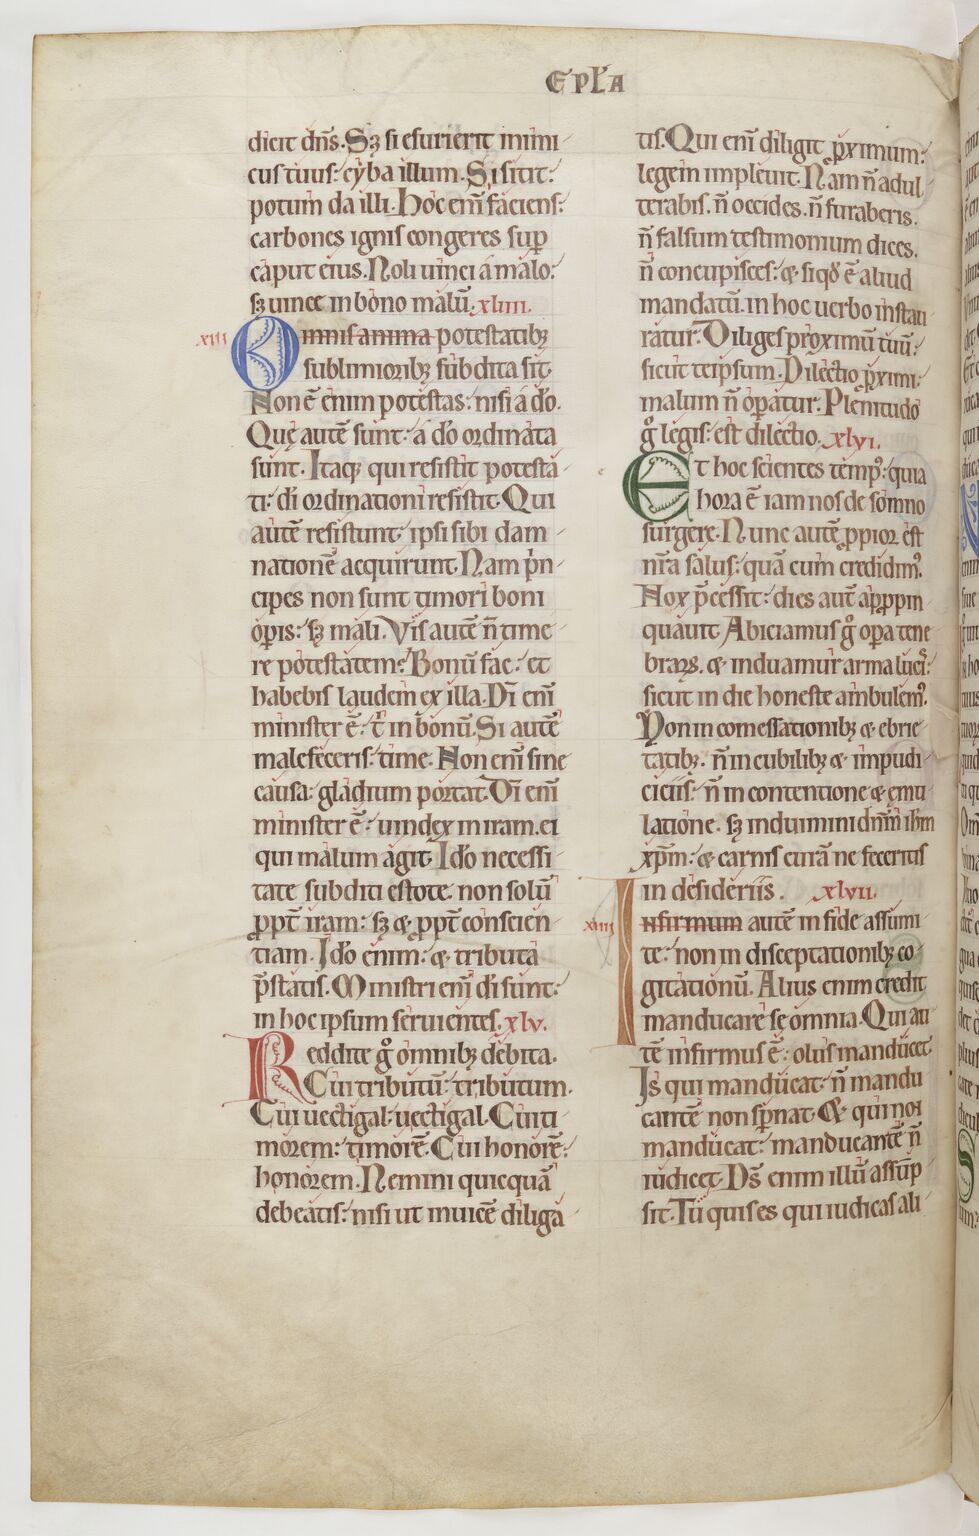 EPLA
dicit dn̄s. Sꝫ si esurierit inimi
cus tuus: cyba illum. Si sitit:
potum da illi. Hoc enī faciens:
carbones ignis congeres sup̄
caput eius. Noli uinci a malo:
sꝫ uince in bono malū. xliiii.
xiii Omnis anima potestatibꝫ
sublimioribꝫ subdita sit.
Non ē enim potestas: nisi a dō.
Quę autē sunt: a dō ordinata
sunt. Itaqꝫ qui resistit potesta
ti: dī ordinationi resistit. Qui
autē resistunt: ipsi sibi dam
nationē acquirunt. Nam prin
cipes non sunt timori boni
oꝑis: sꝫ mali. Vis autē n̄ time
re potestatem? Bonū fac: et
habebis laudem ex illa. Dī enī
minister ē: t̄ in bonū. Si autē
malefeceris: time. Non enī sine
causa: gladium portat. Dī enī
minister ē: uindex in iram. ei
qui malum agit. Ido necessi
tate subditi estote. non solū
ꝓpt̄ iram: sꝫ & ꝓpt̄ conscien
tiam. Ido enim: & tributa
p̄statis. Ministri enī dī sunt:
in hoc ipsum seruientes. xlv.
Reddite gͦ omnibꝫ debita.
Cui tributū: tributum.
Cui uectigal: uectigal. Cui ti
morem: timorē. Cui honorē:
honorem. Nemini quicquā
debeatis: nisi ut inuicē diliga
tis. Qui enī diligit ꝓximum:
legem impleuit. Nam n̄ adul
terabis. n̄ occides. n̄ furaberis.
n̄ falsum testimonium dices.
n̄ concupisces: & siqd̄ ē aliud
mandatū. in hoc uerbo instau
ratur. Diliges proximū tuū:
sicut teipsum. Dilectio ꝓximi:
malum n̄ oꝑatur. Plenitudo
gͦ legis: est dilectio. xlvi.
Et hoc scientes temp⁹: quia
hora ē iam nos de somno
surgere. Nunc autē ꝓpior est
nr̄a salus: quā cum credidim⁹.
Nox p̄cessit: dies autē apꝓpin
quauit. Abiciamus gͦ opera tene
braꝝ. & induamur arma lucis:
sicut in die honeste ambulem⁹.
Non in comessationibꝫ & ebrie
tatibꝫ. n̄ in cubilibꝫ & impudi
ciciis: n̄ in contentione & ęmu
latione. sꝫ induimini dnm̄ ihm̄
xpm̄: & carnis curā ne feceritis
in desideriis. xlvii.
xiiii Infirmum autē in fide assumi
te: non in disceptationibꝫ co
gitationū. Alius enim credit
manducare se omnia. Qui au
tē infirmus ē: olus manducet.
Is qui manducat: n̄ mandu
cantē non sꝑnat. Et qui non
manducat: manducantē n̄
iudicet. Ds̄ enim illū assūp
sit. Tu quis es qui iudicas ali